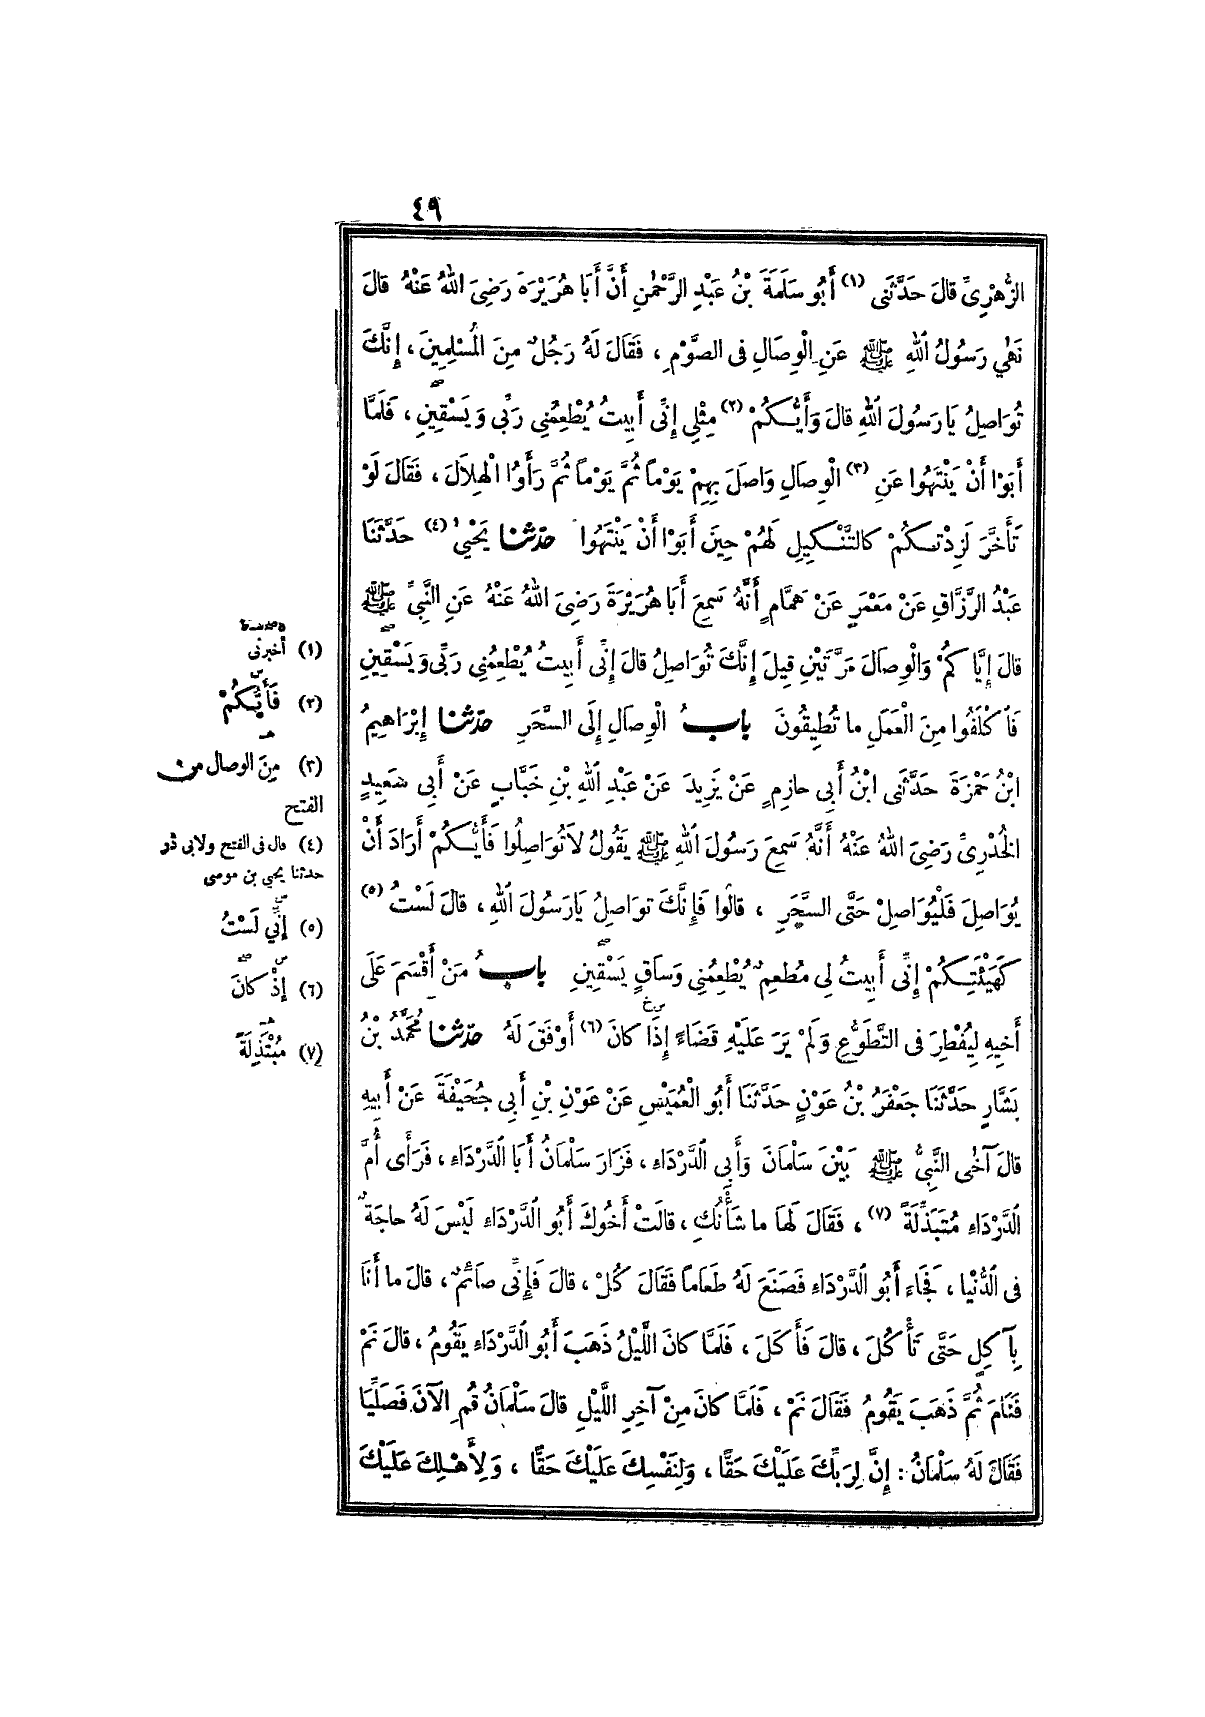 ٤٩
الزُّهْرِيِّ قالَ حَدَّثَنِي (١) أَبُو سَلَمَةَ بْنُ عَبْدِ الرَّحْمٰنِ أَنَّ أَبَا هُرَيْرَةَ رَضِيَ اللهُ عَنْهُ قالَ
نَهٰى رَسُولُ اللهِ ﷺ عَنِ الْوِصَالِ فِى الصَّوْمِ ، فَقَالَ لَهُ رَجُلٌ مِنَ الْمُسْلِمِينَ ، إِنَّكَ
تُوَاصِلُ يَا رَسُولَ اللهِ قالَ وَأَيُّكُمْ (٢) مِثْلِي إِنِّى أَبِيتُ يُطْعِمُنِي رَبِّى وَيَسْقِينِ ، فَلَمَّا
أَبَوْا أَنْ يَنْتَهُوا عَنِ (٣) الْوِصَالِ وَاصَلَ بِهِمْ يَوْمًا ثُمَّ يَوْمًا ثُمَّ رَأَوُا الْهِلَالَ ، فَقَالَ لَوْ
تَأَخَّرَ لَزِدْتُكُمْ كالتَّنْكِيلِ لَهُمْ حِينَ أَبَوْا أَنْ يَنْتَهُوا حدّثنا يَحْيىٰ (٤) حَدَّثَنَا
عَبْدُ الرَّزَّاقِ عَنْ مَعْمَرٍ عَنْ هَمَّامٍ أَنَّهُ سَمِعَ أَبَا هُرَيْرَةَ رَضِيَ اللهُ عَنْهُ عَنِ النَّبِيِّ ﷺ
قالَ إِيَّا كُمْ وَالْوِصَالَ مَرَّتَيْنِ قِيلَ إِنَّكَ تُوَاصِلُ قالَ إِنِّى أَبِيتُ يُطْعِمُنِي رَبِّى وَيَسْقِينِ
فَاَ كْلَفُوا مِنَ الْعَمَلِ ما تُطِيقُونَ بابُ الْوِصَالِ إِلَى السَّحَرِ حدّثنا إِبْرَاهِيمُ
ابْنُ حَمْزَةَ حَدَّثَنِى ابْنُ أَبِي حازِمٍ عَنْ يَزِيدَ عَنْ عَبْدِ اللهِ بْنِ خَبَّابٍ عَنْ أَبِي سَعِيدٍ
الْخُدْرِيِّ رَضِيَ اللهُ عَنْهُ أَنَّهُ سَمِعَ رَسُولَ اللهِ ﷺ يَقُولُ لَا تُوَاصِلُوا فَأَيُّكُمْ أَرَادَ أَنْ
يُوَاصِلَ فَلْيُوَاصِلْ حَتَّى السَّحَرِ ، قالُوا فَإِنَّكَ تُوَاصِلُ يَارَسُولَ اللهِ ، قالَ لَسْتُ (٥)
كَهَيْئَتِكُمْ إِنِّى أَبِيتُ لِي مُطْعِمٌ يُطْعِمُنِي وَسَاقٍ يَسْقِينِ بابُ مَنْ أَقْسَمَ عَلَى
أَخِيهِ لِيُفْطِرَ فِى التَّطَوُّعِ وَلَمْ يَرَ عَلَيْهِ قَضَاءً إِذَا كَانَ (٦) أَوْفَقَ لَهُ حدّثنا مُحَمَّدُ بْنُ
بَشَّارٍ حَدَّثَنَا جَعْفَرُ بْنُ عَوْنٍ حَدَّثَنَا أَبُو الْعُمَيْسِ عَنْ عَوْنِ بْنِ أَبِي جُحَيْفَةَ عَنْ أَبِيهِ
قالَ آخَى النَّبِيُّ ﷺ بَيْنَ سَلْمَانَ وَأَبِي الدَّرْدَاءِ ، فَزَارَ سَلْمَانُ أَبَا الدَّرْدَاءِ ، فَرَأَى أُمَّ
الدَّرْدَاءِ مُتَبَذِّلَةً (٧) ، فَقَالَ لَهَا ما شَأْنُكِ ، قالَتْ أَخُوكَ أَبُو الدَّرْدَاءِ لَيْسَ لَهُ حاجَةٌ
فِى الدُّنْيَا ، فَجَاءَ أَبُو الدَّرْدَاءِ فَصَنَعَ لَهُ طَعَامًا فَقَالَ كُلْ ، قالَ فَإِنِّى صائِمٌ ، قالَ ما أَنَا
بِآ كِلٍ حَتَّى تَأْ كُلَ ، قالَ فَأَ كَلَ ، فَلَمَّا كانَ اللَّيْلُ ذَهَبَ أَبُو الدَّرْدَاءِ يَقُومُ ، قالَ نَمْ
فَنَامَ ثُمَّ ذَهَبَ يَقُومُ فَقَالَ نَمْ ، فَلَمَّا كانَ مِنْ آخِرِ اللَّيْلِ قالَ سَلْمَانُ قُمِ الْآنَ فَصَلَّيَا
فَقَالَ لَهُ سَلْمَانُ : إِنَّ لِرَبِّكَ عَلَيْكَ حَقًّا ، وَلِنَفْسِكَ عَلَيْكَ حَقًّا ، وَلِأَهْلِكَ عَلَيْكَ
(١) أخبرنى
(٢) فَأَيُّكُمْ
(٣) مِنَ الوصال من
الفتح
(٤) قال فى الفتح ولابى ذر
حدثنا يحيى بن موسى
(٥) إِنِّي لَسْتُ
(٦) إِذْ كانَ
(٧) مُبْتَذِلَةً